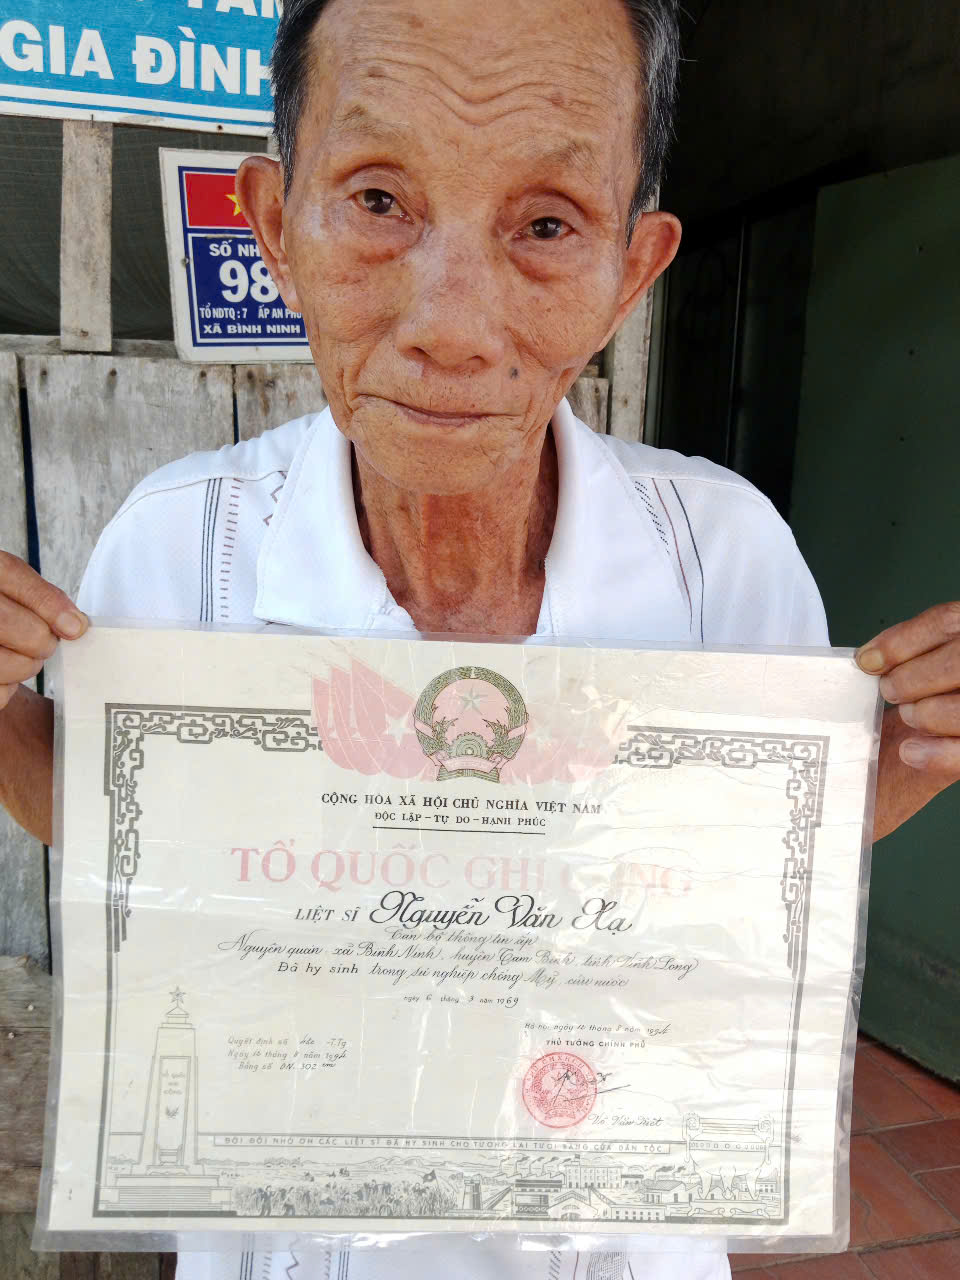 GIA ĐÌNH
SỐ NH
98
TỔ NDTQ : 7 ẤP AN PHÚ
XÃ BÌNH NINH
CỘNG HÒA XÃ HỘI CHỦ NGHĨA VIỆT NAM
ĐỘC LẬP - TỰ DO - HẠNH PHÚC
TỔ QUỐC GHI CÔNG
LIỆT SĨ Nguyễn Văn Xạ
Cán bộ thông tin ấp
Nguyên quán xã Bình Ninh, huyện Tam Bình, tỉnh Vĩnh Long
Đã hy sinh trong sự nghiệp chống Mỹ, cứu nước
ngày 6 tháng 3 năm 1969
Quyết định số TTg
Ngày 16 tháng 8 năm 1994
Bằng số ĐN. 302 cm
Hà Nội, ngày 16 tháng 8 năm 1994
THỦ TƯỚNG CHÍNH PHỦ
Võ Văn Kiệt
TỔ QUỐC
GHI
CÔNG
ĐỜI ĐỜI NHỚ ƠN CÁC LIỆT SĨ ĐÃ HY SINH CHO TƯƠNG LAI TƯƠI SÁNG CỦA DÂN TỘC